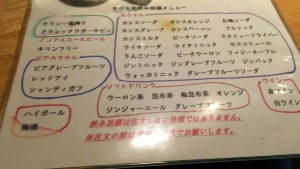 飲み放題メニュー
キリン一番搾り
ノンアルコールビール
キリンフリー
ビアグレープフルーツ
レッドアイ
シャンディガフ
ハイボール
梅酒
カクテル
カシスソーダ カシスオレンジ 巨峰サワー
カシスグレープ カシスウーロン
カシスミルク ピーチソーダ
ライチソーダ ライチトニック モスコミュール
りんごソーダ ピーチウーロン ファジーネーブル
ジントニック ジンバック
ウォッカトニック グレープフルーツサワー
ソフトドリンク
ウーロン茶 昆布茶 梅昆布茶 オレンジ
ジンジャーエール グレープフルーツ
ワイン
赤ワイン
白ワイン
飲み放題は注文しまい放題ではありません。
でお願いします。